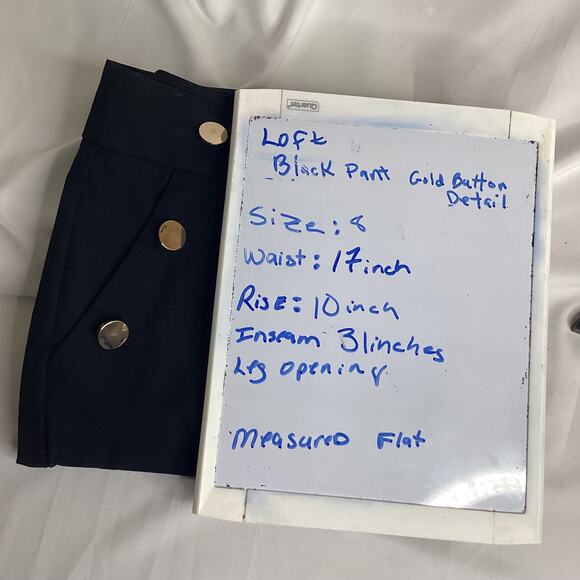 Quartet
Loft
Black Pant Gold Button
Detail
Size: 8
Waist: 17inch
Rise: 10inch
Inseam 31inches
Leg opening
Measured Flat